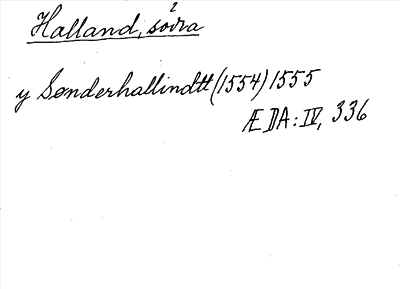 Halland, södra
y Sønderhallindtt (1554) 1555
ÆDA: IV, 336